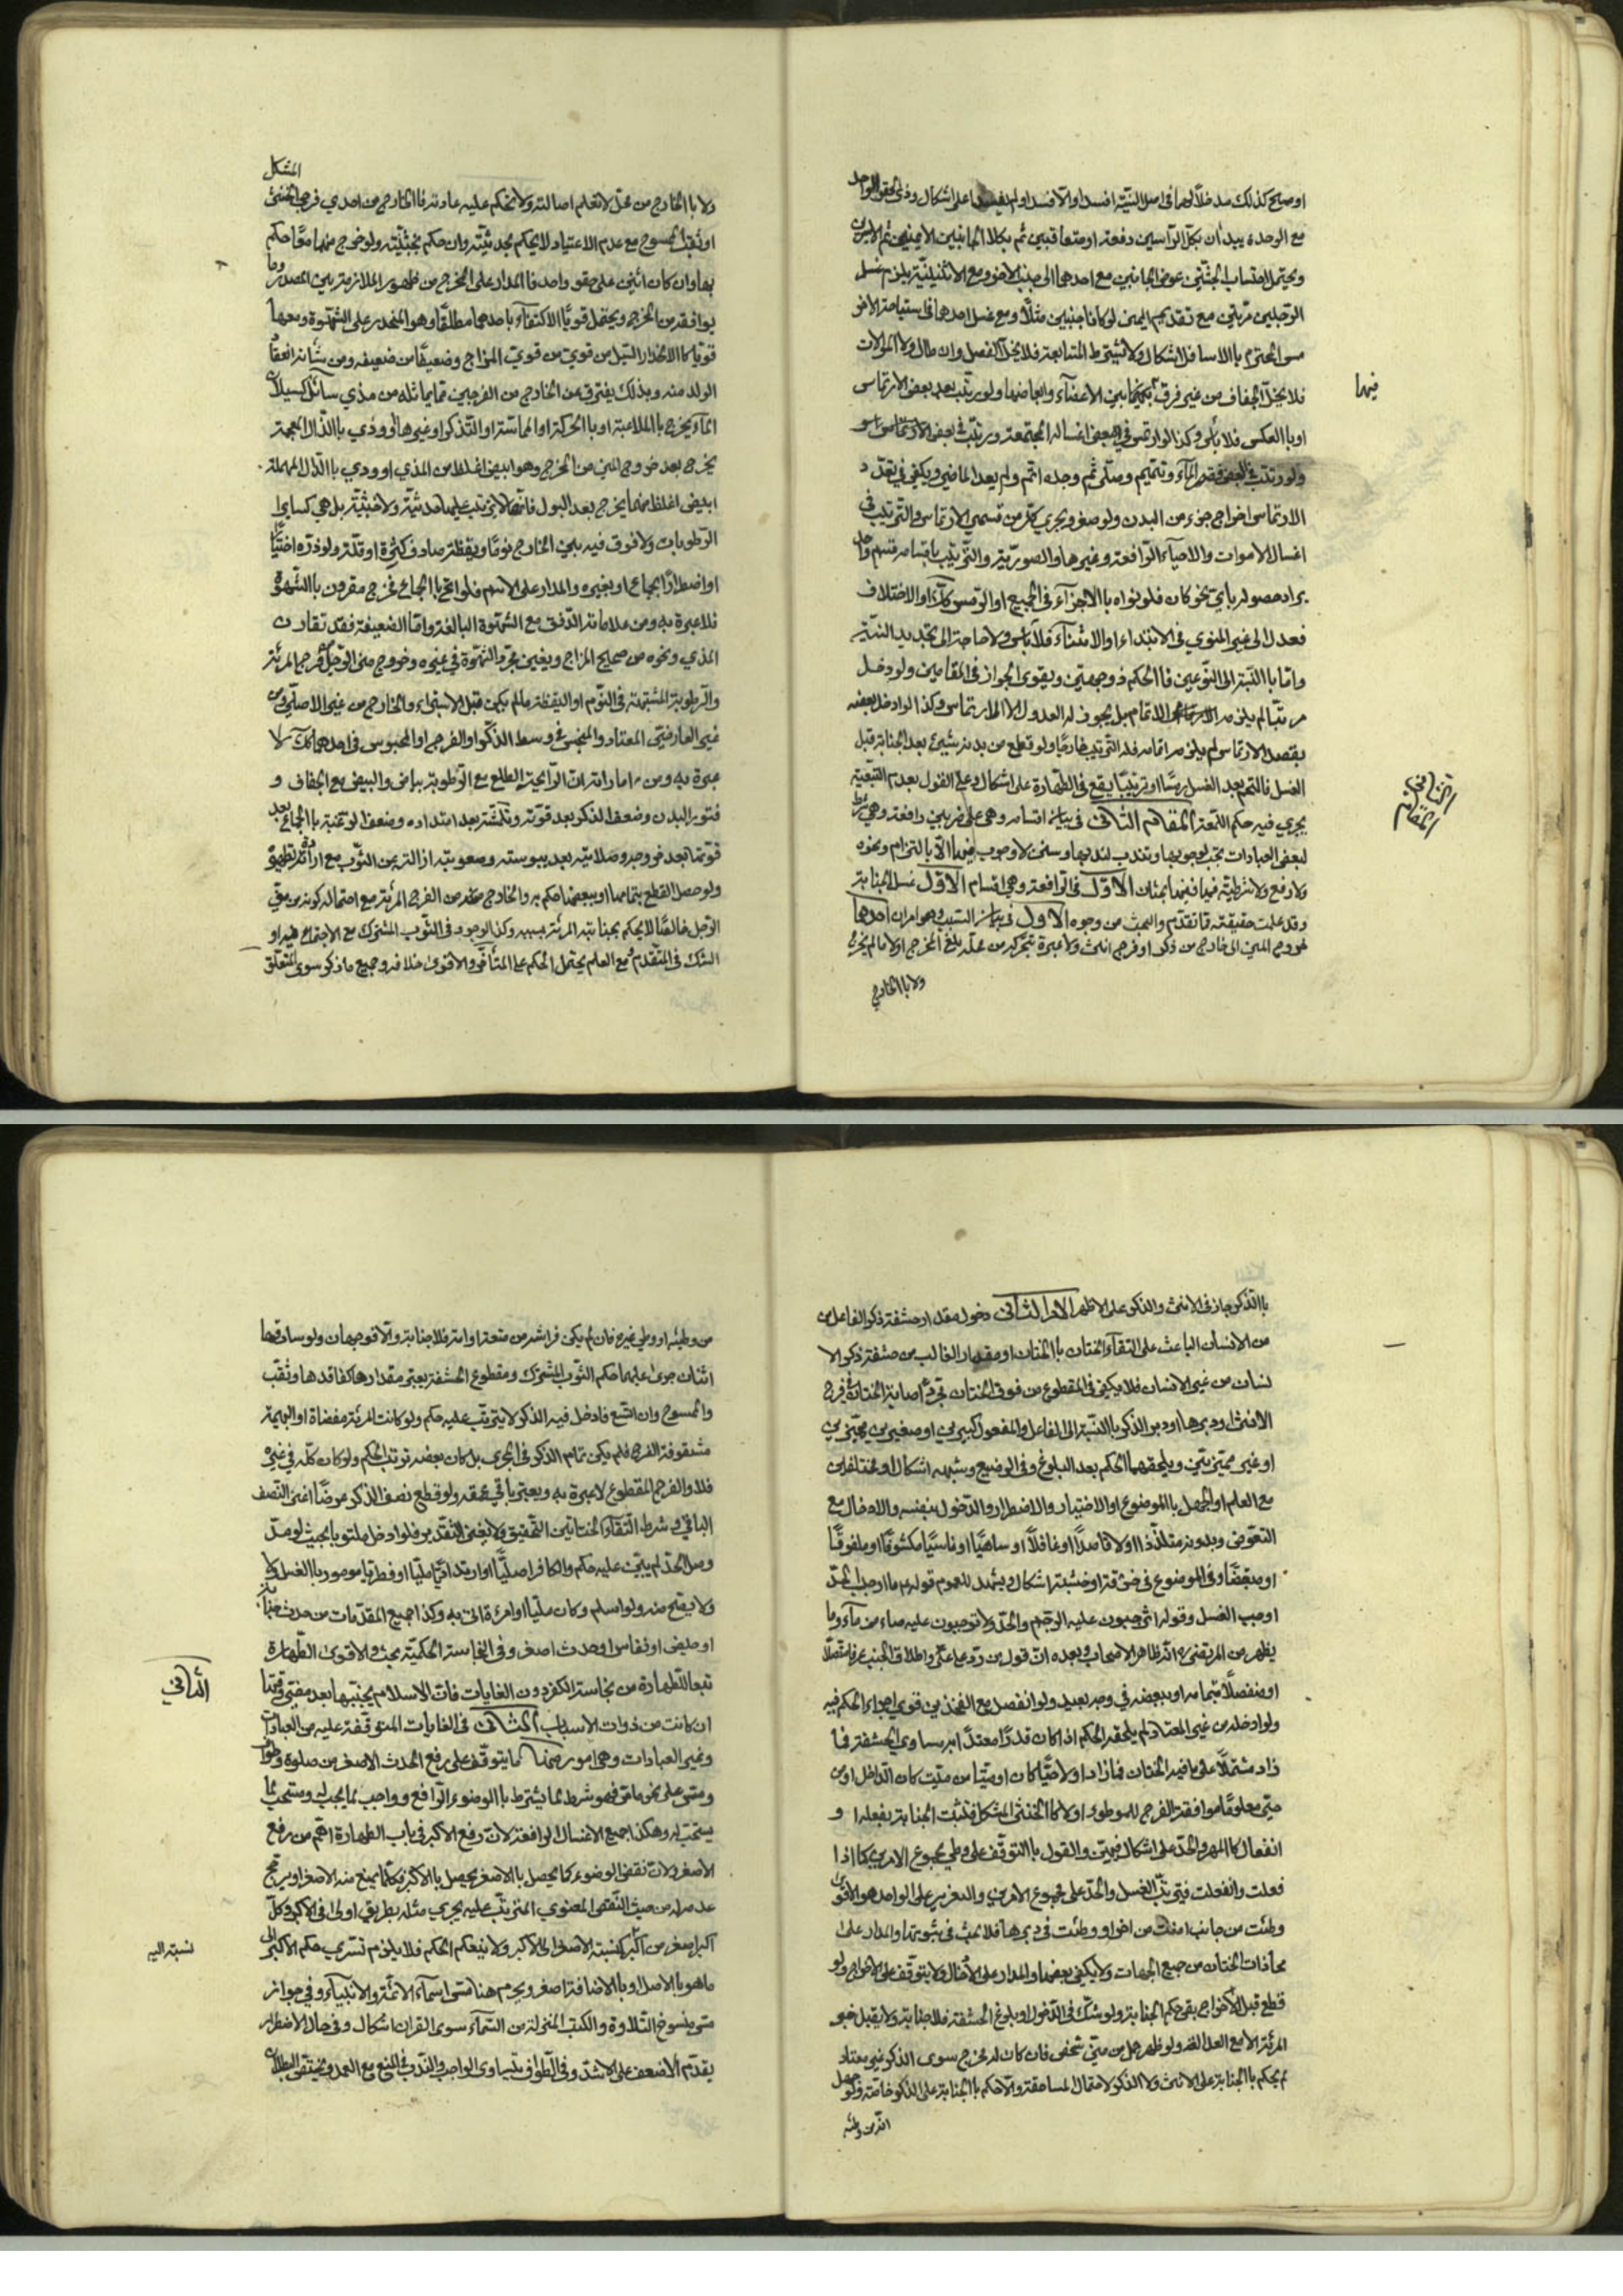 او صح كذلك مد خلاً لهما في اصل النيّة افسد او الّا فسد او لم على اشكال وذي الحقو الواحد
مع الوحدة يبدأن بكلّ الرّأسين دفعة او متعاقبين ثم بكلا الجانبين الايمنين ثم الايسرين
ويحتمل احتساب الجثّتين عوض الجانبين مع احدهما الى جنب الاخر ومع الاثنينيّة يلزم غسل
الرّجلين مرّتين مع تقديم اليمنى لو كانا جنبين مثلاً ومع غسل احدهما في استباحة الاخر
مس المحترم باالاسافل اشكال ولا تشترط المتابعة فلا يخلّ الفصل وان طال ولا الموالات
فلا يخلّ الجفاف من غير فرق بين الاعضاء وابعاضها ولو رتّب بعد بعض الارتماس
فيهما
او باالعكس فلا بأس وكذا لو ارتمس في بعض اغساله المجتمعة ورتّب في بعض
ولو رتب في البعض فقد المآء وتيمّم وصلّى ثم وجده اتم ولم يعد الماضي ويكفي في تعدّد
الارتماس اخراج جزء من البدن ولو صغر ويجري كل من قسمي الارتماس والترتيب في
اغسال الاموات والاحيآء الرّافعة وغيرها والصوريّة والتّرتيب باقسامه قسم واحد
يراد حصوله باي نحو كان فلو نواه باالاجزآء في الجميع او الرّمس كلّاً او الاختلاف
فعدل الى غير المنوي في الابتداء او الاثنآء فلا بأس ولا حاجة الى تجديد النيّة
وامّا باالنّسبة الى النّوعين فاالحكم ذو وجهين ويقوى الجواز في المقامين ولو دخل
مرتّباً لم يلزمه الاتمام بل يجوز له العدول الى الارتماس وكذا لو ادخل بعضه
بقصد الارتماس لم يلزمه اتمامه فله التّرتيب خارجاً ولو قطع من بدنه شيئ بعد الجنابة قبل
الغسل فاالتحم بعد الغسل رمسًا او ترتيبًا يقع في الطّهارة على اشكال وعلى القول بعدم التبعيّة
يجري فيه حكم اللّمعة المقام الثّاني في بيان اقسامه وهي على ضربين رافعة وهي شرط
الثاني المقام
لبعض العبادات تجب لوجوبها وتندب لندبها وسنن لا وجوب فيها الّا باالتزام ونحوه
ولا رفع ولا شرطيّة فيها فيهما بحثان الاوّل في الرّافعة وهي اقسام الاوّل غسل الجنابة
وقد علمت حقيقته ممّا تقدّم والبحث من وجوه الاوّل في بيان السّبب وهو امران احدهما
خروج المني الى خارج من ذكر او فرج انثى ولا عبرة بتحرّكه من محلّه بلغ المخرج او لا مالم يخرج
ولا باالخارج
المشكل
ولا باالخارج من محلّ لا تعلم اصالته ولا تحكم عليه عادته فاالخارج من احدي فرجي الخنثى
او ثقب الممسوح مع عدم الاعتياد لا يحكم بحدثيّته وان حكم بخبثيّته ولو خرج منهما معًا حكم
بها وان كان اثنين على حقو واحد فاالمدار على الخروج من ظهور الملازمة بين المصدر وما
يوافقه من المخرج ويحتمل قويًّا الاكتفآء باحدهما مطلقًا وهو المنحدر على الشّهوة ومعها
قويًّا كاالانحدار السّيل من قويّ من قويّ المزاج وضعيفًا من ضعيفه ومن شأنه انعقاد
الولد منه وبذلك يفترق عن الخارج من الفرجين ممّا يماثله من مذي سائل كسيلان
المآء يخرج باالملاعبة او باالحركة او الماسّة او التّذكر او غيرها او وذي باالذّال المعجمة
يخرج بعد خروج المني من المخرج وهو ابيض اغلظ من المذي او ودي باالدّال المهملة
ابيض اغلظ منهما يخرج بعد البول فانّها لا يترتب عليها حدثيّة ولا خبثيّة بل هي كساير
الرّطوبات ولا فرق فيه بين الخارج نومًا ويقظة صادف كثرة او قلّة ولو ذرّه اختيارًا
او اضطرارًا بجماع او بغيره والمدار على الاسم فلو اتى باالجماع فخرج مقرون باالشّهوة
فلا عبرة به ومن علاماته الدّفق مع الشّهوة البالغة وامّا الضعيفة فقد تقارن
المذي ونحوه من صحيح المزاج ويغني مجرّد الشّهوة في غيره وخروج مني الرّجل من فرج المرئة
والرّطوبة المشتبهة في النّوم او اليقظة مالم يكن قبل الاستبراء والخارج من غير الاصلي ومن
غير العارضيّ المعتاد والمنبجس في وسط الذّكر او الفرج او المحبوس في احدهما كلّ ذلك لا
عبرة به ومن اماراته ان الرّايحة الطلع مع الرّطوبة وبياض البيض مع الجفاف و
فتور البدن وضعف الذّكر بعد قوّته وتكمّشه بعد امتداده وضعف الرّغبة باالجماع بعد
قوّتها بعد خروجه وصلابته بعد يبوسته وصعوبته ازالته من الثّوب مع ارادة تطهيره
ولو حصل القطع بتمامها او ببعضها حكم به والخارج من الفرج المرئة مع احتمال كونه من مني
الرّجل خالصًا لا يحكم بجنابته المرئة بسببه وكذا الموجود في الثّوب المشترك مع الاجتماع فيه او
الشّك في المتقدم مع العلم يحتمل الحكم على المتأخر والاقوى خلافه وجميع ما ذكر سوى المتعلّق
باالذّكر جار في الانثى والذكر على الاظهر الامر الثّاني دخول مقدار حشفة ذكر الفاعل من
من الانسان الباعث على التقآء الختان باالختان او مقدار الغالب من حشفة ذكر الا
نسان من غير الانسان فلا يكفي في المقطوع من فوق الختان مجرّد اصابة الختان في فرج
الانثى او دبرها او دبر الذكر باالنّسبة الى الفاعل والمفعول كبيرين او صغيرين مميّزين
او غير مميّزين ويلحقهما الحكم بعد البلوغ وفي الرضيع وشبهه اشكال او مختلفين
مع العلم او الجهل باالموضوع او الاختيار والاضطرار والدّخول بنفسه والادخال مع
التعوّض وبدونه متلذّذا او لا قاصدًا او غافلاً او ساهيًا او ناسيًا مكشوفًا او ملفوفًا
او منقبضًا وفي الموضوع في خرقة او خشبة اشكال ويشهد للعموم قوله ع ما اوجب الحدّ
اوجب الغسل وقوله اتوجبون عليه الرّجم والحدّ ولا توجبون عليه صاع من مآء وما
يظهر من المرتضى ره انّه ظاهر الاصحاب وبعده انّ قول من ردّ على عليّ واطلاق الجنب عرفا متّصلاً
او منفصلاً بتمامه او ببعضه في وجه بعيد ولو انفصل مع الفخذين قوي اجراء الحكم فيه
ولو ادخله من غير المعتاد لم يلحقه الحكم اذا كان قدرًا معتدًّا به مساوي الحشفة فما
زاد مشتملاً على ما فيه الختان فما زاد او لا حيًّا كان او ميّتا من ميّت كان الدّاخل او من
حيّ معلومًا موافقة الفرج للموطوء او لا كاالخنثى المشكل فتثبت الجنابة بفعلها و
انفعالها كالمهر والحدّ على اشكال فيهما والقول باالتوقّف على وطي مجموع الامرين كما اذا
فعلت وانفعلت فيترتّب الغسل والحدّ على مجموع الامرين والتعزير على الواحد هو الاقوى
وطئت من جانب امثلت من اخر او وطئت في دبرها فلا بحث في ثبوتها والمدار على
محاذات الختان من جميع الجهات ولا يكفي بعضها والمدار على الادخال ولا يتوقف على الاخراج ولو
قطع قبل الاخراج بقي حكم الجنابة ولو شكّ في الدّخول او بلوغ الحشفة فلا جنابة ولا يقبل خبر
المرئة الا مع العدالة ولو ظهر حمل من مني شخص فان كان له مخرج سوى الذكر غير معتاد
لم يحكم باالجنابة على الانثى ولا الذكر لاحتمال المساحقة والّا حكم باالجنابة على الذكر خاصّة ولو جهل
انّه من وطئه
من وطيئه او وطي غيره فان لم يكن فراشه من متعة او امة فلا جنابة والّا فوجهان ولو ساحقها
اثنان جرى عليهما حكم الثّوب المشترك ومقطوع الحشفة يعتبر مقدارها كفاقدها وثقب
والممسوح وان اتّسع فادخل فيه الذكر لا يترتّب عليه حكم ولو كانت المرئة مفضاة او البهيمة
مشقوقة الفرج فلم يكن تمام الذكر في المجرى بل كان بعضه ترتب الحكم ولو كان كلّه في غيره
فلا والفرج المقطوع لا عبرة به ويعتبر باقي عمقه ولو قطع نصف الذكر عرضًا اغنى النّصف
الباقي وشرط التّقآء الختانين التحقيق ولا يغني التّقدير فلو ادخل ملتويا بحيث لو مدّ
وصل الحدّ لم يثبت عليه حكم والكافر اصليًّا او ارتدادًّا مليّا او فطريا مومور باالغسل ولا
ولا يصح منه ولو اسلم وكان مليّا او امرءة اتى به وكذا جميع المقدّمات من حدث جنابة
او حيض او نفاس او حدث اصغر وفي النّجاسة الحكميّة بحث والاقوى الطّهارة
تبعا للطهارة من نجاسة الكفر دون الغايات فانّ الاسلام يجبّها بعد مضيّ وقتها
ان كانت من ذوات الاسباب الثّاني في الغايات المتوقفة عليه من العبادات
الثّاني
وغير العبادات وهي امور منها ما يتوقّف على رفع الحدث الاصغر من صلوة وطواف
ومسّ على نحو ما مرّ فهو شرط لما يشترط باالوضوء الرّافع وواجب لما يجب له ومستحب لما
يستحبّ له وهكذا جميع الاغسال الرّافعة لانّ رفع الاكبر في باب الطهارة اهم من رفع
الاصغر ولانّ نقض الوضوء كما يحصل باالاصغر يحصل باالاكبر فكلّما يمنع منه الاصغر او يرجح
عدمه له من حيث النّقص المعنوي المترتّب عليه يجري مثله بطريق اولى في الاكبر وكلّ
اكبر اصغر من اكبر كنسبة الاصغر الى الاكبر ولا ينعكم الحكم فلا يلزم تسّري حكم الاكبر الى
نسبته اليه
ما هو باالاصل او باالاضافة اصغر ويحرم هنا مسّ اسمآء الائمّة والانبيآء وفي جواز
مسّ منسوخ التّلاوة والكتب المنزلة من السّمآء سوى القران اشكال وفي حال الاضطرار
يقدّم الاضعف على الاشدّ وفي الطّواف يتساوى الواجب والنّدب في المنع مع العمد ويختصّ البطلان